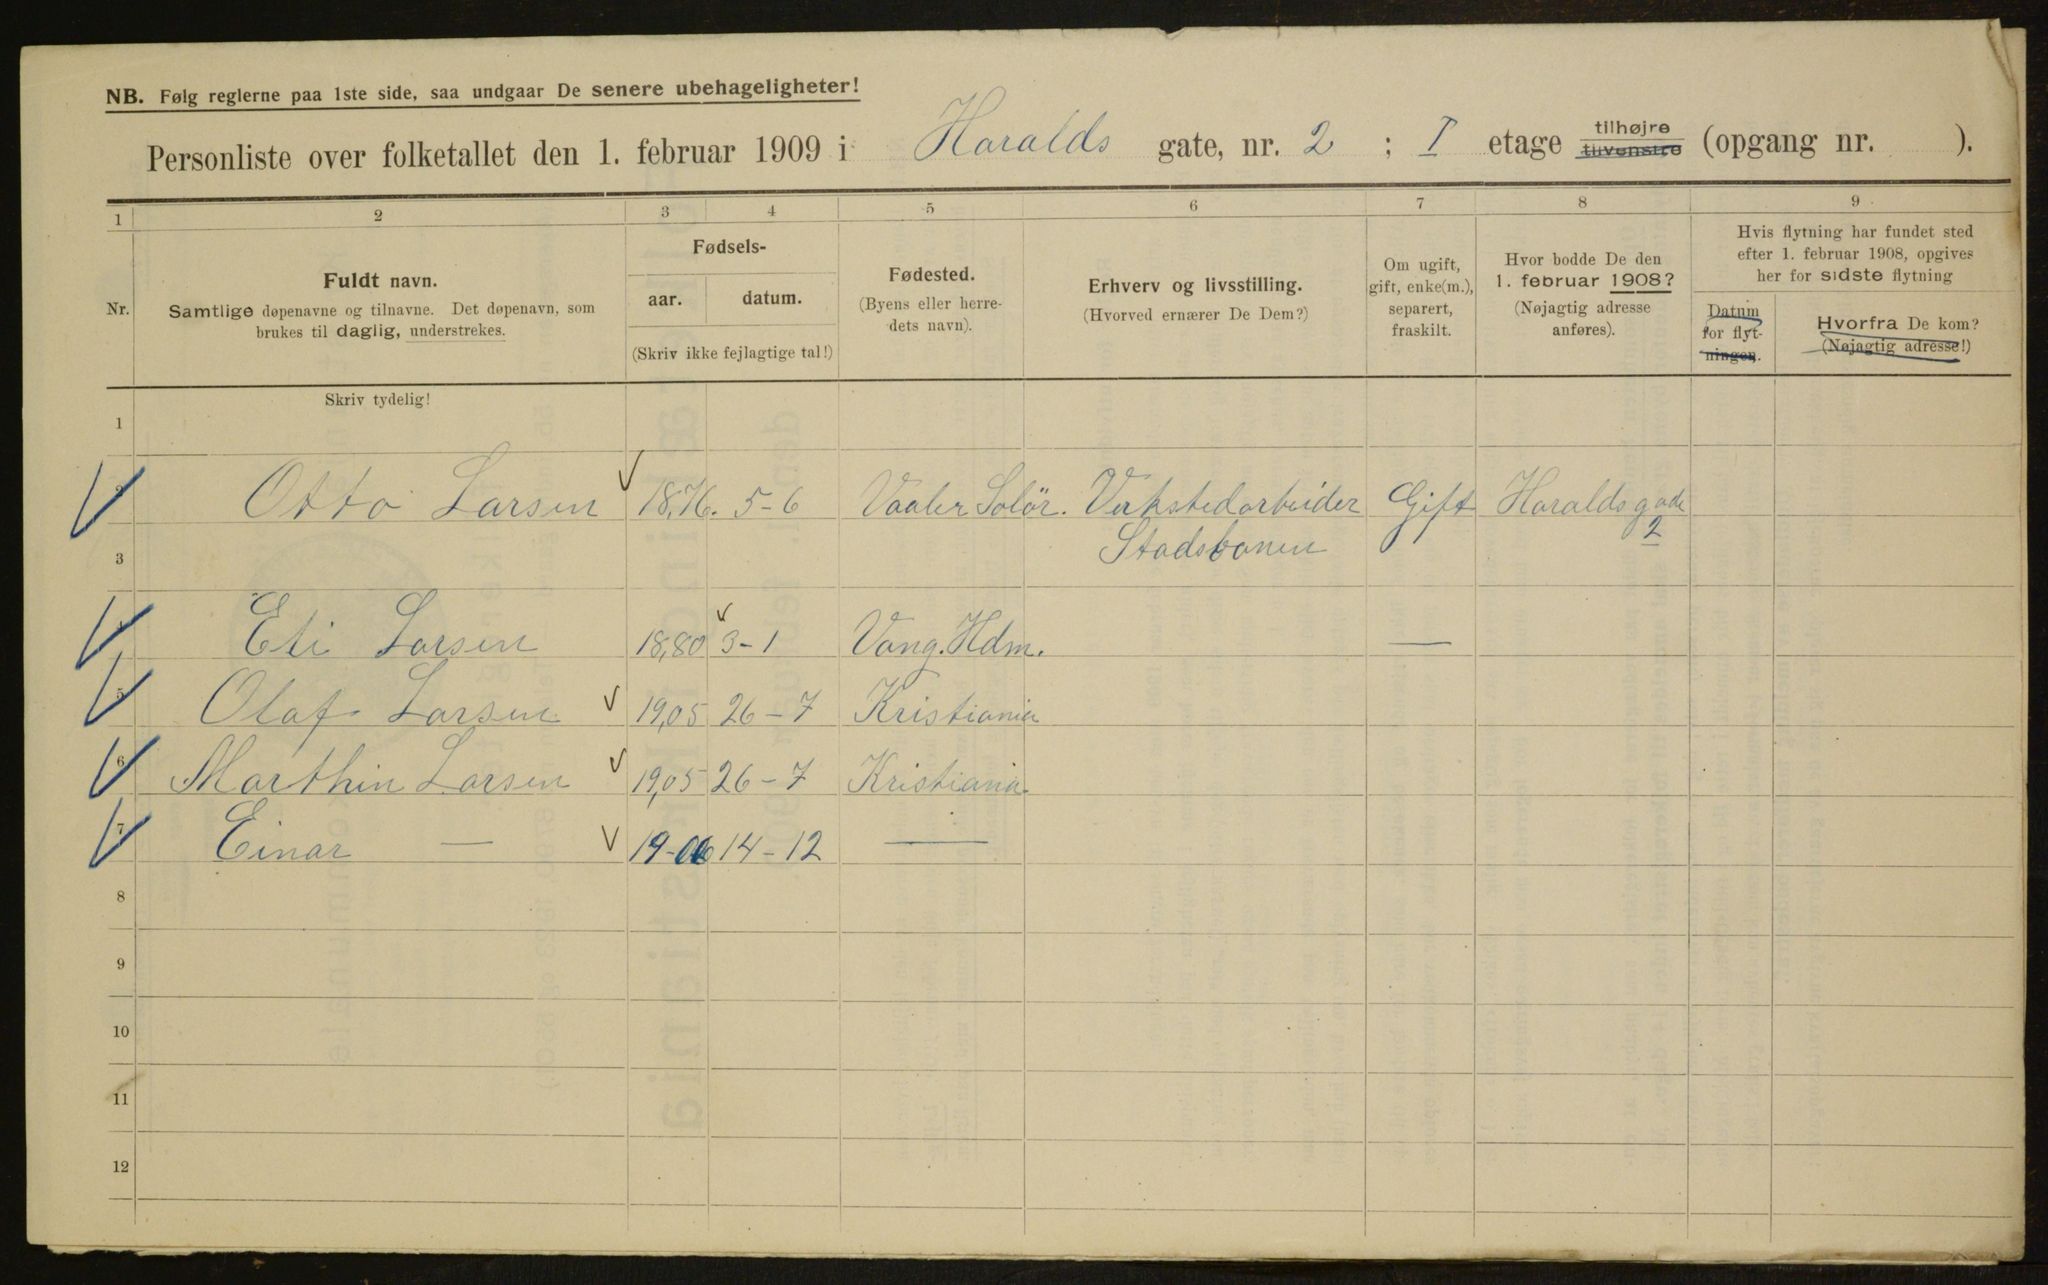 NB. Følg reglerne paa 1ste side, saa undgaar De senere ubehageligheter!
Personliste over folketallet den 1. februar 1909 i Haralds gate, nr. 2 ; I etage tilhøjre tilvenstre (opgang nr. ).
1 2 3 4 5 6 7 8 9
Nr.
Fuldt navn.
Samtlige døpenavne og tilnavne. Det døpenavn, som
brukes til daglig, understrekes.
Fødsels-
aar. datum.
(Skriv ikke fejlagtige tal!)
Fødested.
(Byens eller herre-
dets navn).
Erhverv og livsstilling.
(Hvorved ernærer De Dem?)
Om ugift,
gift, enke(m.),
separert,
fraskilt.
Hvor bodde De den
1. februar 1908?
(Nøjagtig adresse
anføres).
Hvis flytning har fundet sted
efter 1. februar 1908, opgives
her for sidste flytning
Datum
for flyt-
ningen.
Hvorfra De kom?
(Nøjagtig adresse!)
Skriv tydelig!
1
2 Otto Larsen 18,76. 5-6 Vaaler Solör. Verkstedarbeider Gift Haraldsgade
3 Stadsbanen 2
4 Eli Larsen 18,80 3-1 Vang. Hdm. —
5 Olaf Larsen 19,05 26-7 Kristiania
6 Marthin Larsen 19,05 26-7 Kristiania
7 Einar — 19-06 14-12 —
8
9
10
11
12